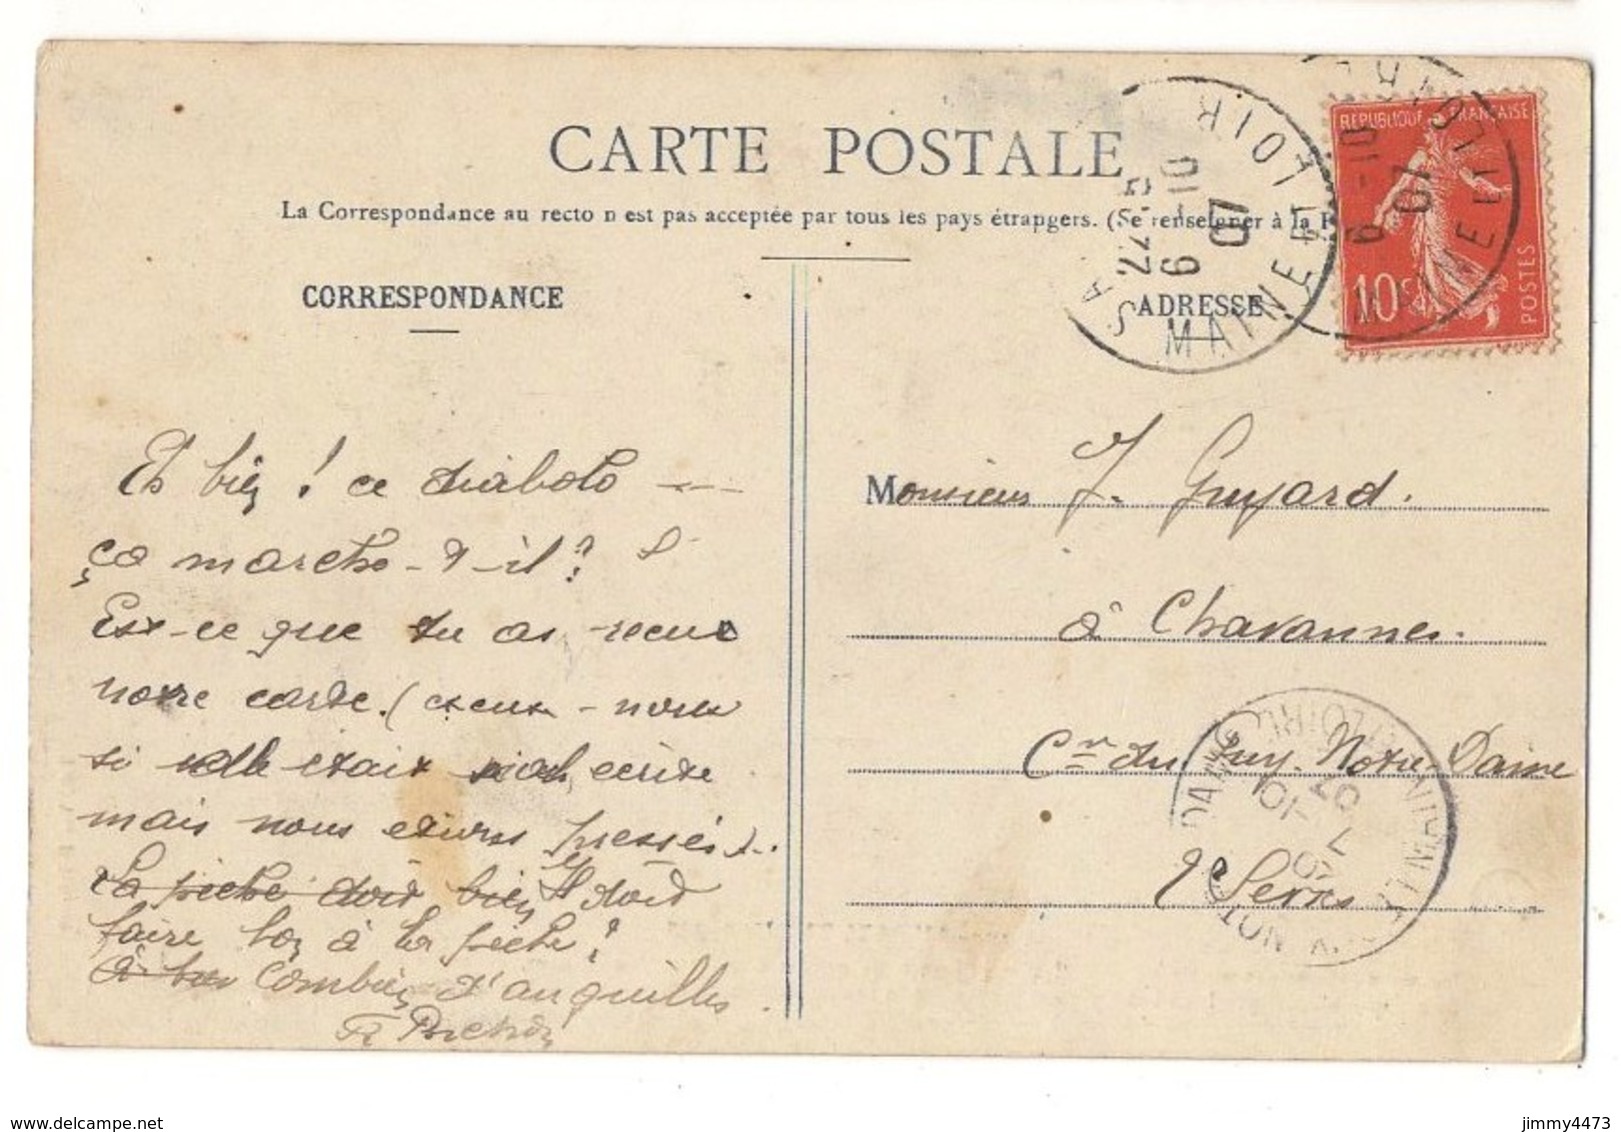 CARTE POSTALE
La Correspondance au recto n'est pas acceptée par tous les pays étrangers. (Se renseigner à la
CORRESPONDANCE
ADRESSE
REPUBLIQUE FRANÇAISE
10c
POSTES
MAINE ET LOIRE
6-10
07
MAINE ET LOIR
6-10
07
Eh bien ! ce diabolo
ça marche-t-il ?
Est-ce que tu as reçu
notre carte. (excuse-nous
si elle était mal écrite
mais nous étions pressés).
La pêche doit bien Il doit
faire bon à la pêche ?
Combien d'anguilles
Monsieur J. Guyard.
à Chavannes.
Cne du Puy-Notre-Dame
MAINE ET LOIRE
7-10
07